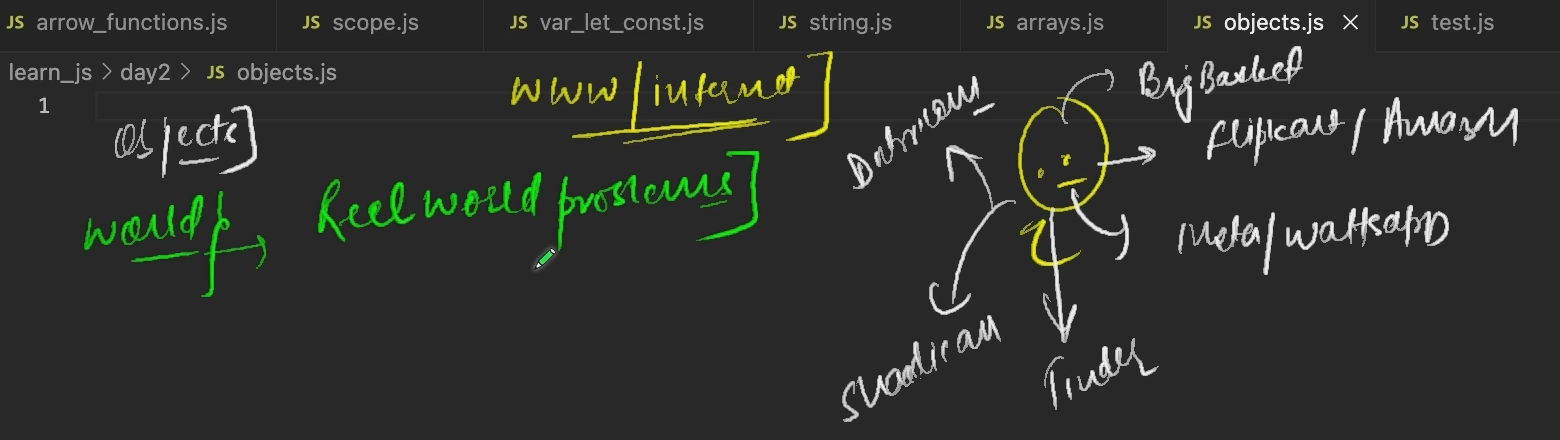 JS arrow_functions.js JS scope.js JS var_let_const.js JS string.js JS arrays.js JS objects.js × JS test.js
learn_js > day2 > JS objects.js
1
www/internet]
Objects]
world
Real world problems]
BigBasket
Flipcart / Amazon
Meta/wattsapp
Tinder